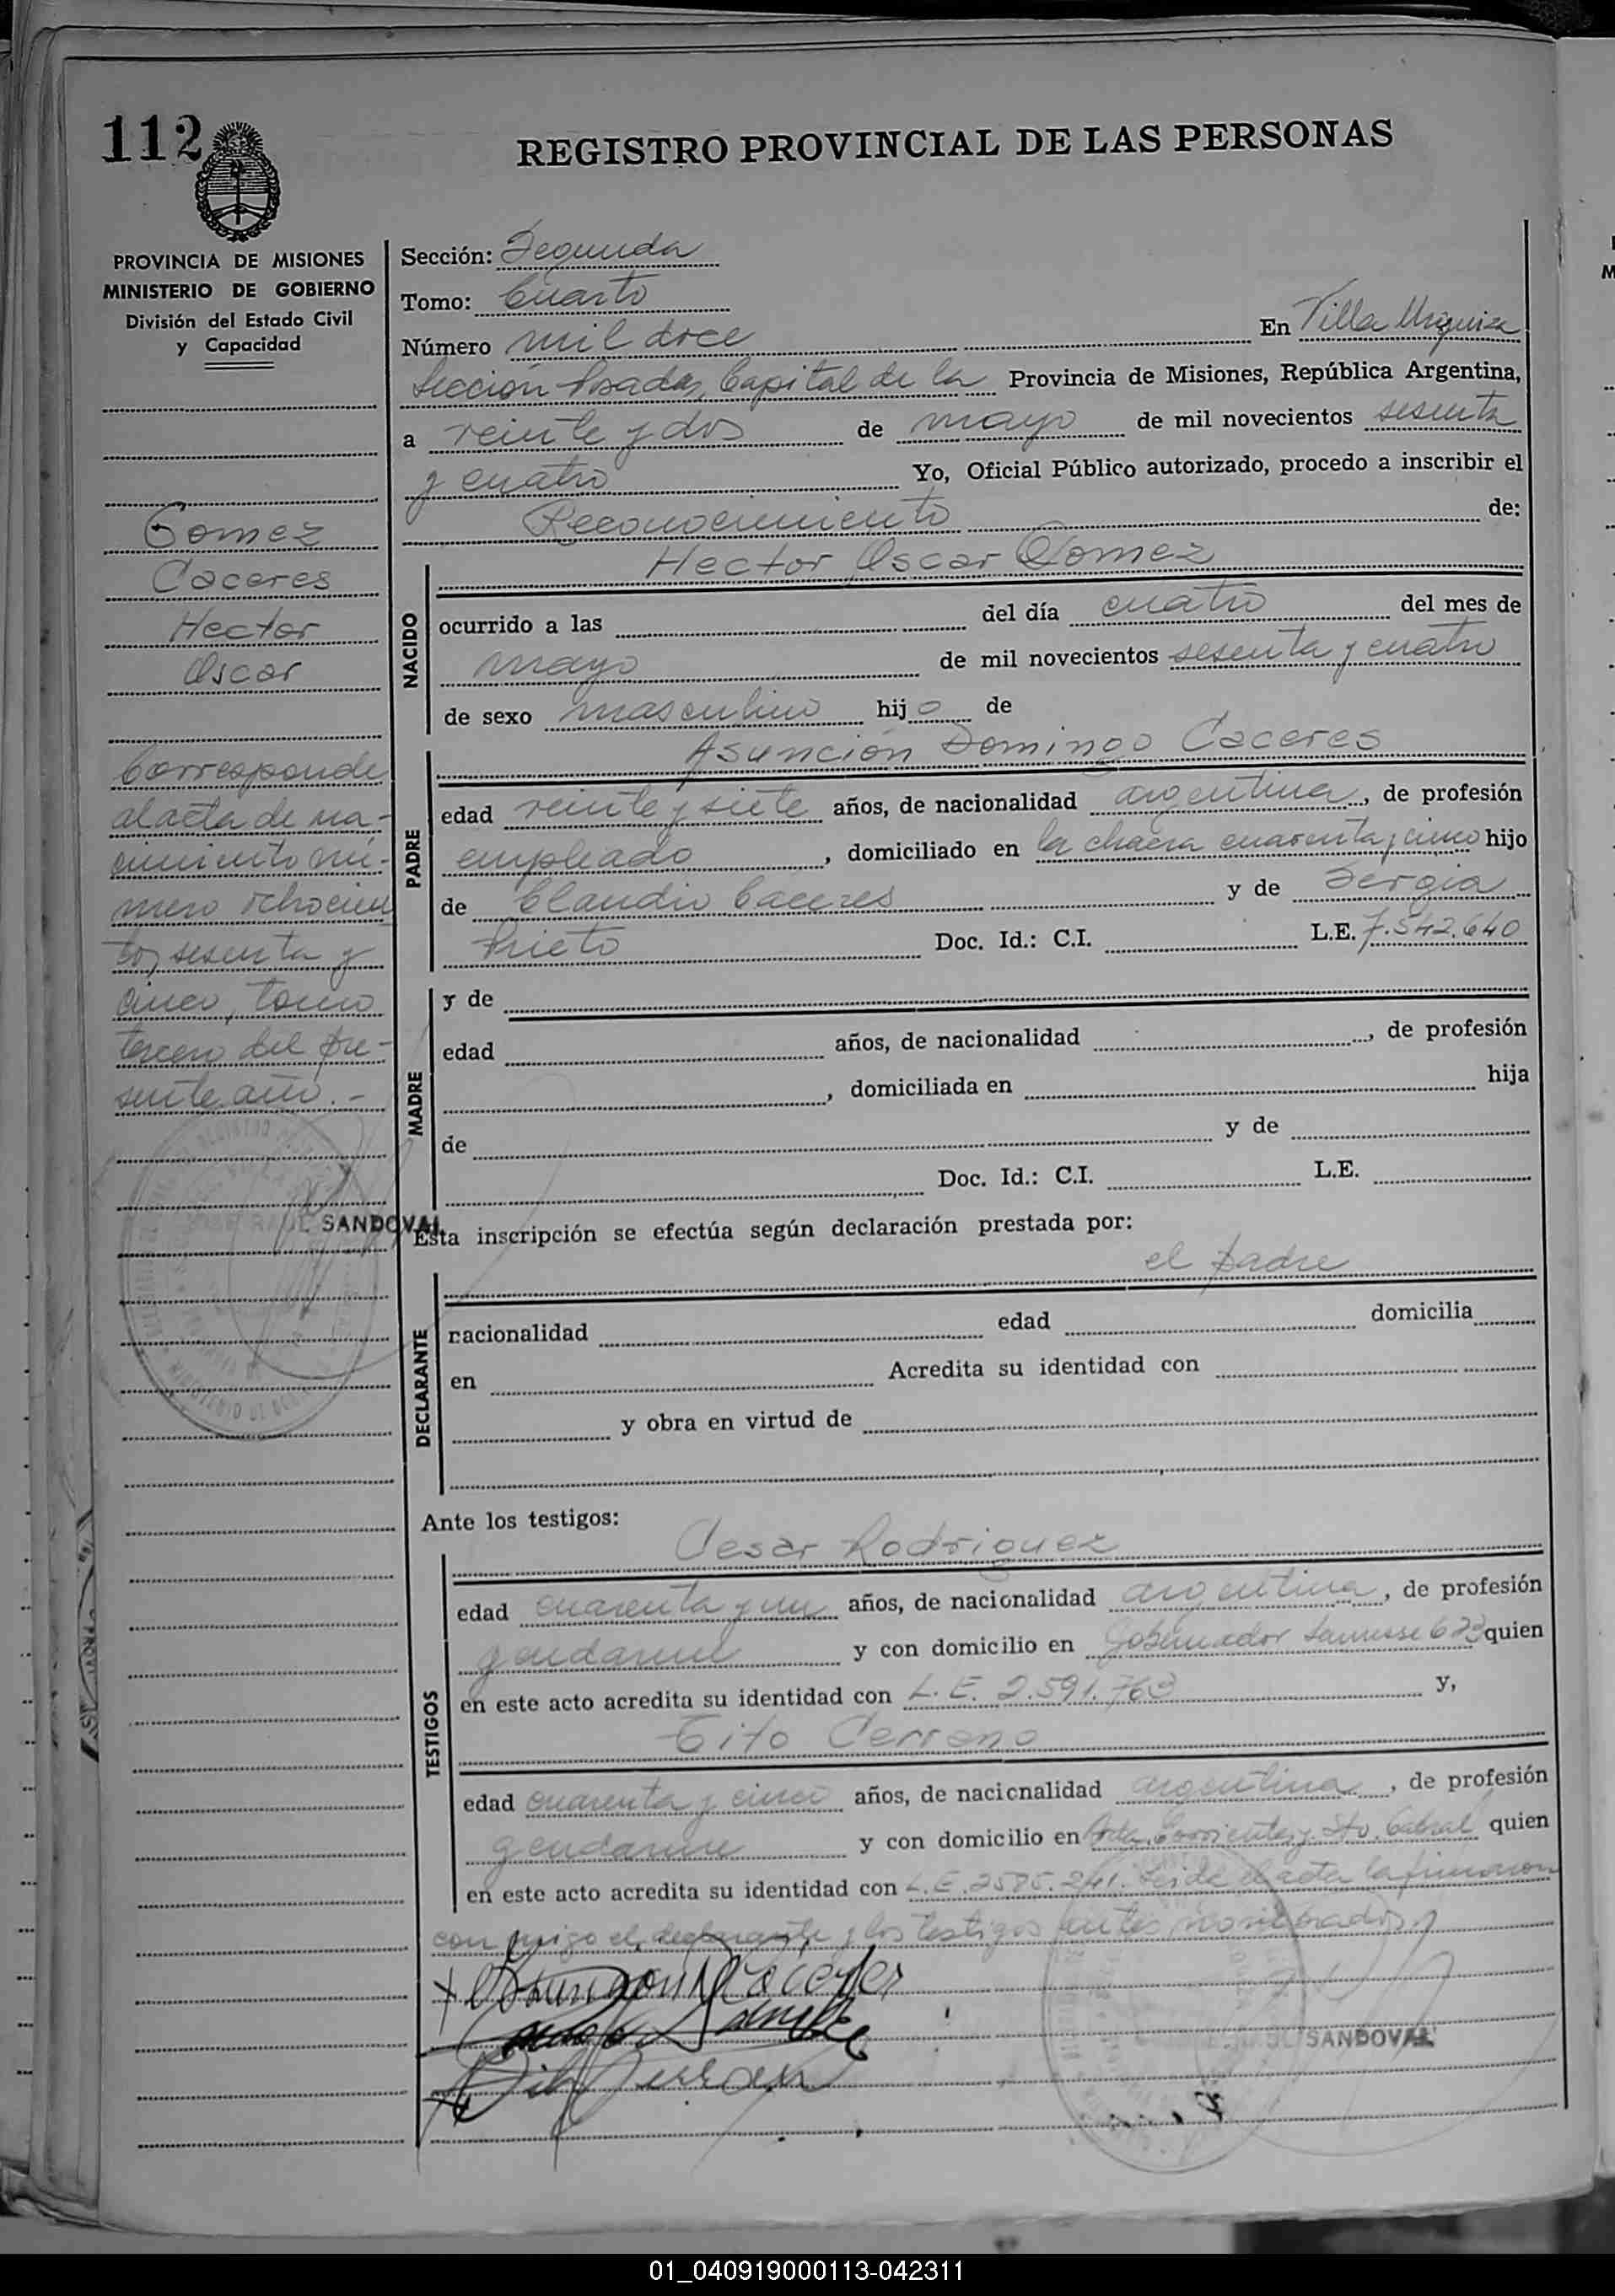 112
REGISTRO PROVINCIAL DE LAS PERSONAS
PROVINCIA DE MISIONES
MINISTERIO DE GOBIERNO
División del Estado Civil
y Capacidad
Gomez
Caceres
Hector
Oscar
Corresponde
al acta de na-
cimiento nú-
mero ochocien
tos sesenta y
cinco, tomo
tercero del pre-
sente año.-
RAUL SANDOVAL
Sección: Segunda
Tomo: Cuarto
Número mil doce En Villa Urquiza
Sección Posadas, Capital de la Provincia de Misiones, República Argentina,
a veinte y dos de mayo de mil novecientos sesenta
y cuatro Yo, Oficial Público autorizado, procedo a inscribir el
Reconocimiento de:
Hector Oscar Gomez
NACIDO
ocurrido a las del día cuatro del mes de
mayo de mil novecientos sesenta y cuatro
de sexo masculino hijo de
Asunción Domingo Caceres
PADRE
edad veinte y siete años, de nacionalidad argentina, de profesión
empleado, domiciliado en la chacra cuarenta y cinco hijo
de Claudio Caceres y de Sergia
Prieto Doc. Id.: C.I. L.E. 7.542.640
MADRE
y de
edad años, de nacionalidad , de profesión
, domiciliada en hija
de y de
Doc. Id.: C.I. L.E.
Esta inscripción se efectúa según declaración prestada por:
el padre
DECLARANTE
nacionalidad edad domicilia
en Acredita su identidad con
y obra en virtud de
Ante los testigos:
Cesar Rodriguez
TESTIGOS
edad cuarenta y un años, de nacionalidad argentina, de profesión
gendarme y con domicilio en Gobernador Lanusse 623 quien
en este acto acredita su identidad con L.E. 2.591.763 y,
Tito Cerrano
edad cuarenta y cinco años, de nacionalidad argentina, de profesión
gendarme y con domicilio en Avda. Corrientes y Sto. Cabral quien
en este acto acredita su identidad con L.E. 2585.241. Leida el acta la firmaron
conmigo el declarante y los testigos antes nombrados.
SANDOVAL
01_040919000113-042311